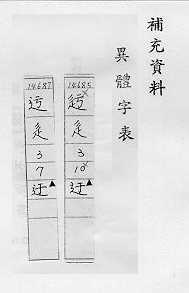 補充資料
異體字表
14685
辵
3
10
迂▲
14687
辵
3
7
迂▲